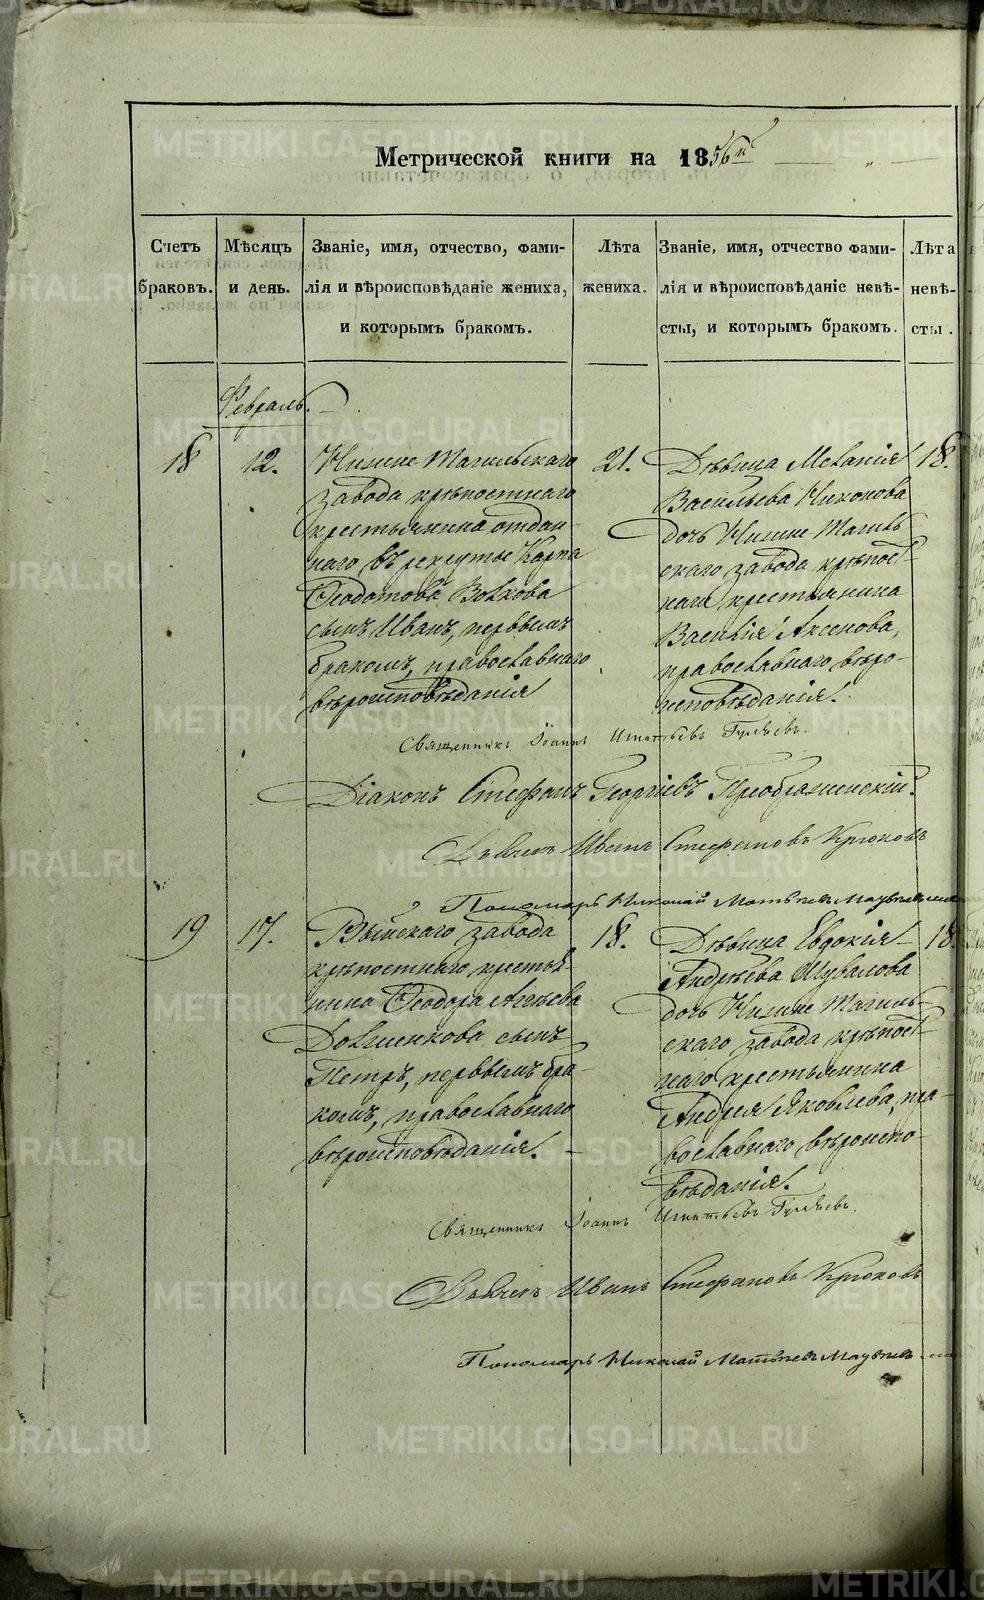 Метрической книги на 1856й
Счетъ браковъ.
Мѣсяцъ и день.
Званіе, имя, отчество, фами-
лія и вѣроисповѣданіе жениха,
и которымъ бракомъ.
Лѣта жениха.
Званіе, имя, отчество фами-
лія и вѣроисповѣданіе невѣ-
сты, и которымъ бракомъ.
Лѣта невѣ-
сты.
Февраль.
18
12.
Нижне Тагильскаго
завода крѣпостнаго
крестьянина отдан-
наго въ рекруты Карпа
Ѳеодотова Волкова
сынъ Иванъ, первымъ
бракомъ, православнаго
вѣроисповѣданія
21.
Дѣвица Меланія
Васильева Никонова
дочь Нижне Тагиль
скаго завода крѣпост-
наго крестьянина
Василія Аксенова,
православнаго вѣро-
исповѣданія.
18.
Священникъ Іоаннъ Игнатьевъ Гуляевъ.
Діаконъ Стефанъ Георгіевъ Преображенскій.
Дьячекъ Иванъ Стефановъ Крюковъ
Пономарь Николай Матвѣевъ
19
17.
Выйскаго завода
крѣпостнаго крестья-
нина Ѳеодора Агѣева
Долженкова сынъ
Петръ, первымъ бра-
комъ, православнаго
вѣроисповѣданія.
18.
Дѣвица Евдокія
Андрѣева Шувалова
дочь Нижне Тагиль-
скаго завода крѣпост-
наго крестьянина
Андрея Яковлева, пра-
вославнаго вѣроиспо-
вѣданія.
18.
Священникъ Іоаннъ Игнатьевъ Гуляевъ.
Дьячекъ Иванъ Стефановъ Крюковъ
Пономарь Николай Матвѣевъ
METRIKI.GASO-URAL.RU